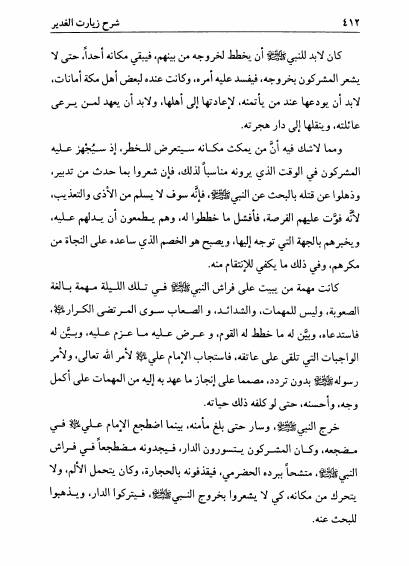 ٤١٢
شرح زيارت الغدير
كان لابد للنبي ﷺ أن يخطط لخروجه من بينهم، فيبقي مكانه أحداً، حتى لا
يشعر المشركون بخروجه، فيفسد عليه أمره، وكانت عنده لبعض أهل مكة أمانات،
لابد أن يودعها عند من يأتمنه، لإعادتها إلى أهلها، ولابد أن يعهد لمن يرعى
عائلته، وينقلها إلى دار هجرته.
ومما لاشك فيه أنَّ من يمكث مكانه سيتعرض للخطر، إذ سيُجْهز عليه
المشركون في الوقت الذي يرونه مناسباً لذلك، فإن شعروا بما حدث من تدبير،
وذهلوا عن قتله بالبحث عن النبي ﷺ، فإنَّه سوف لا يسلم من الأذى والتعذيب،
لأنَّه فوّت عليهم الفرصة، فأفشل ما خططوا له، وهم يطمعون أن يدلهم عليه،
ويخبرهم بالجهة التي توجه إليها، ويصبح هو الخصم الذي ساعده على النجاة من
مكرهم، وفي ذلك ما يكفي للإنتقام منه.
كانت مهمة من يبيت على فراش النبي ﷺ في تلك الليلة مهمة بالغة
الصعوبة، وليس للمهمات، والشدائد، و الصعاب سوى المرتضى الكرار،
فاستدعاه، وبيَّن له ما خطط له القوم، و عرض عليه ما عزم عليه، وبيَّن له
الواجبات التي تلقى على عاتقه، فاستجاب الإمام علي لأمر الله تعالى، ولأمر
رسوله ﷺ بدون تردد، مصمما على إنجاز ما عهد به إليه من المهمات على أكمل
وجه، وأحسنه، حتى لو كلفه ذلك حياته.
خرج النبي ﷺ، وسار حتى بلغ مأمنه، بينما اضطجع الإمام علي في
مضجعه، وكان المشركون يتسورون الدار، فيجدونه مضطجعاً في فراش
النبي ﷺ، متشحاً ببرده الحضرمي، فيقذفونه بالحجارة، وكان يتحمل الألم، ولا
يتحرك من مكانه، كي لا يشعروا بخروج النبي ﷺ، فيتركوا الدار، ويذهبوا
للبحث عنه.